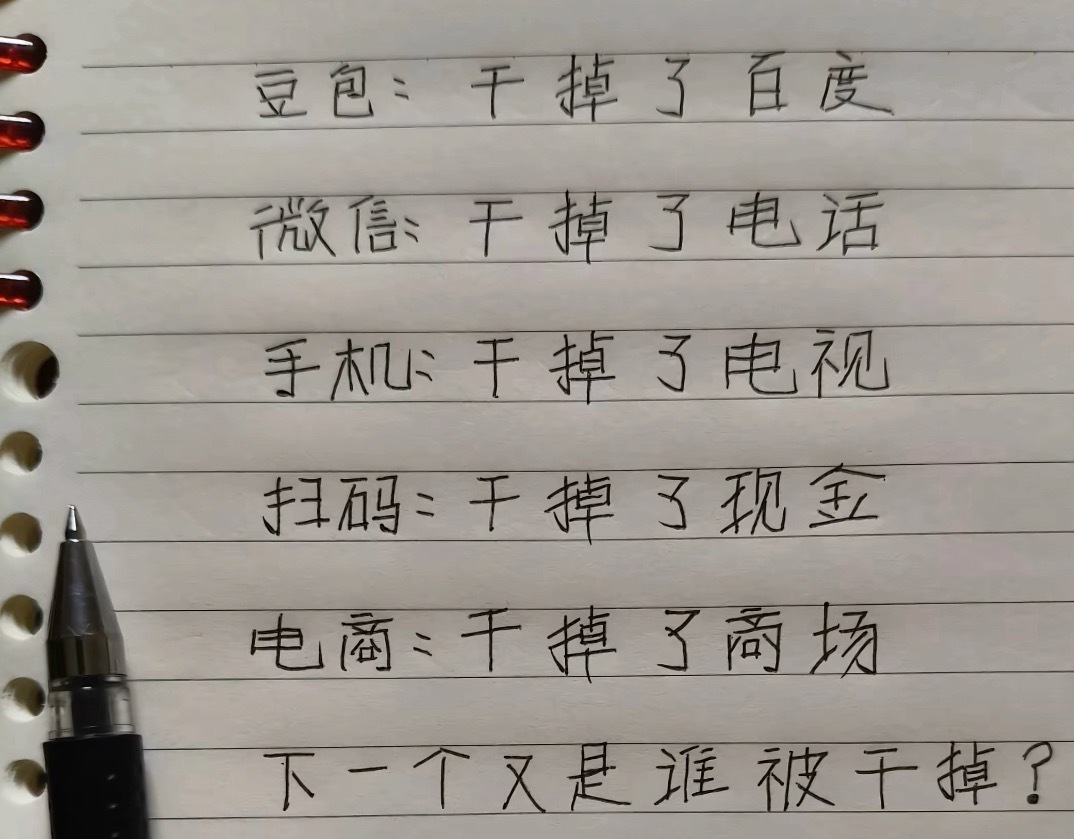 豆包：干掉了百度
微信：干掉了电话
手机：干掉了电视
扫码：干掉了现金
电商：干掉了商场
下一个又是谁被干掉？